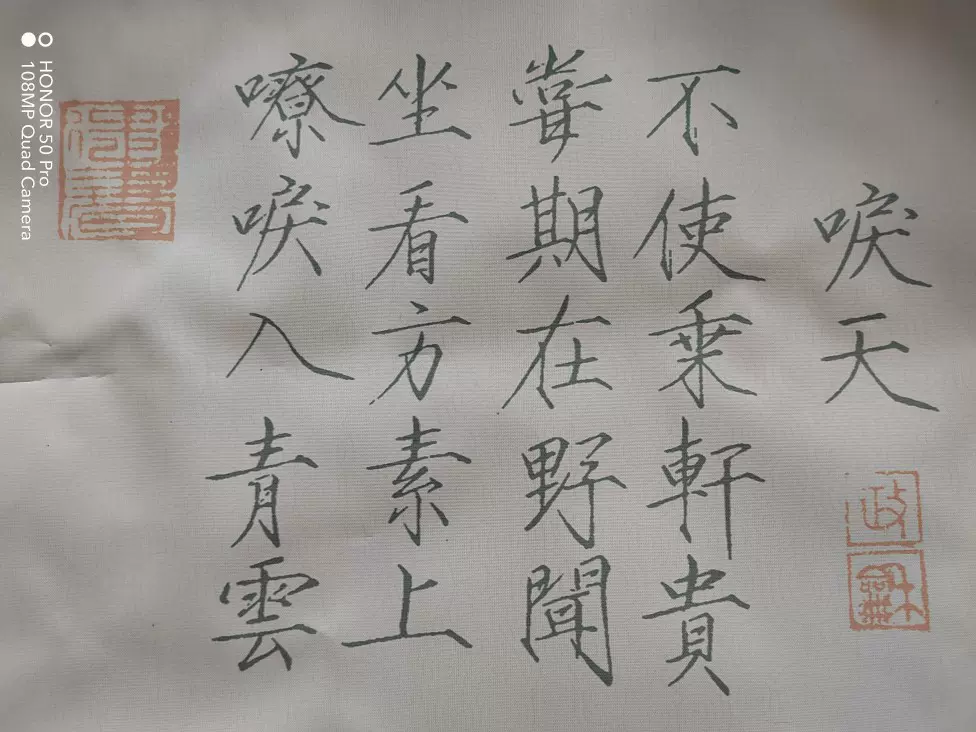 唳天
不使乘軒貴
甞期在野聞
坐看方素上
嘹唳入青雲
政
龢
HONOR 50 Pro
108MP Quad Camera